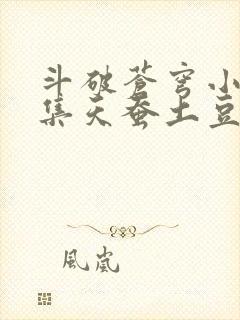 斗破苍穹小
集天蚕土豆
風嵐